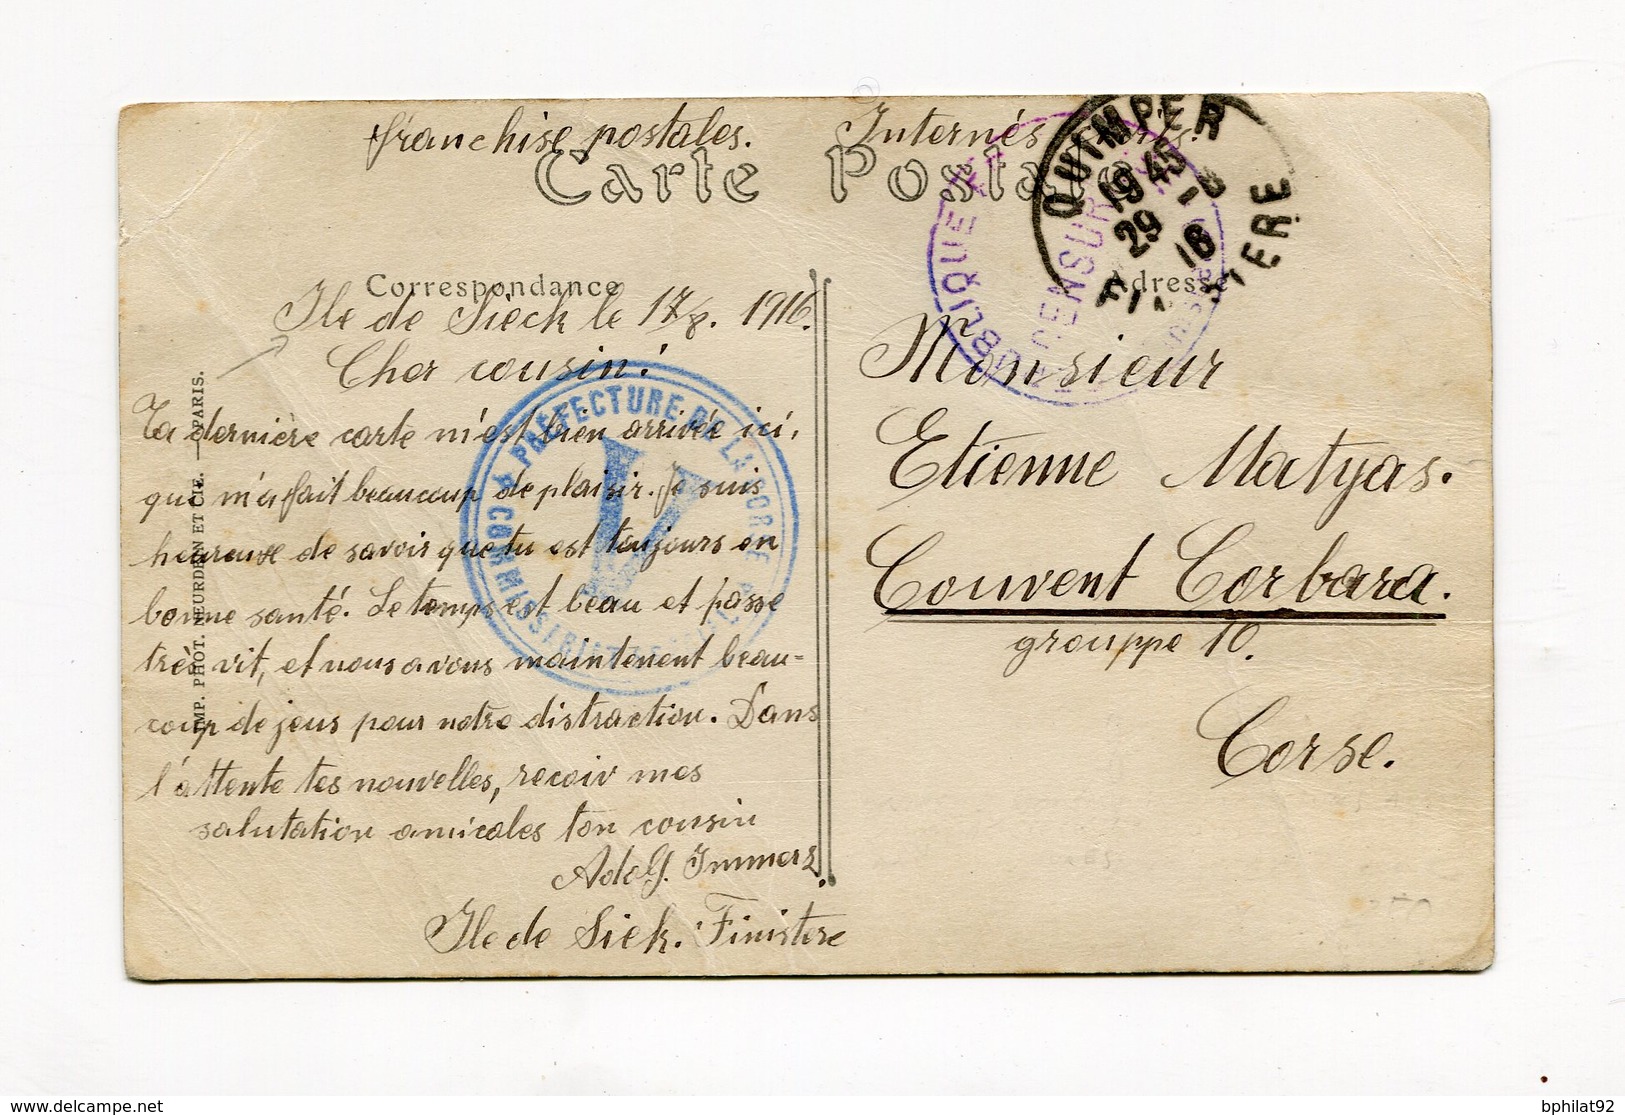 franchise postales. Internés Civils.
Carte Postale
QUIMPER
19 45
29 - 8
16
FINISTERE
CENSURE
Correspondance
Adresse
Ile de Sieck le 17/8. 1916.
Cher cousin!
Ta dernière carte m'est bien arrivée ici,
que m'a fait beaucoup de plaisir. Je suis
heureuse de savoir que tu est toujours en
bonne santé. Le temps est beau et passe
tres vit, et nous avons maintenent beau-
coup de jeus pour notre distraction. Dans
l'attente tes nouvelles, recoiv mes
salutation amicales ton cousin
Adolf. Immerz.
Ile de Siek. Finistere
PRÉFECTURE DE LA CORSE
V
Monsieur
Etienne Matyas.
Couvent Corbara.
grouppe 10.
Corse.
IMP. PHOT. NEURDEIN ET CIE. — PARIS.
bphilat92